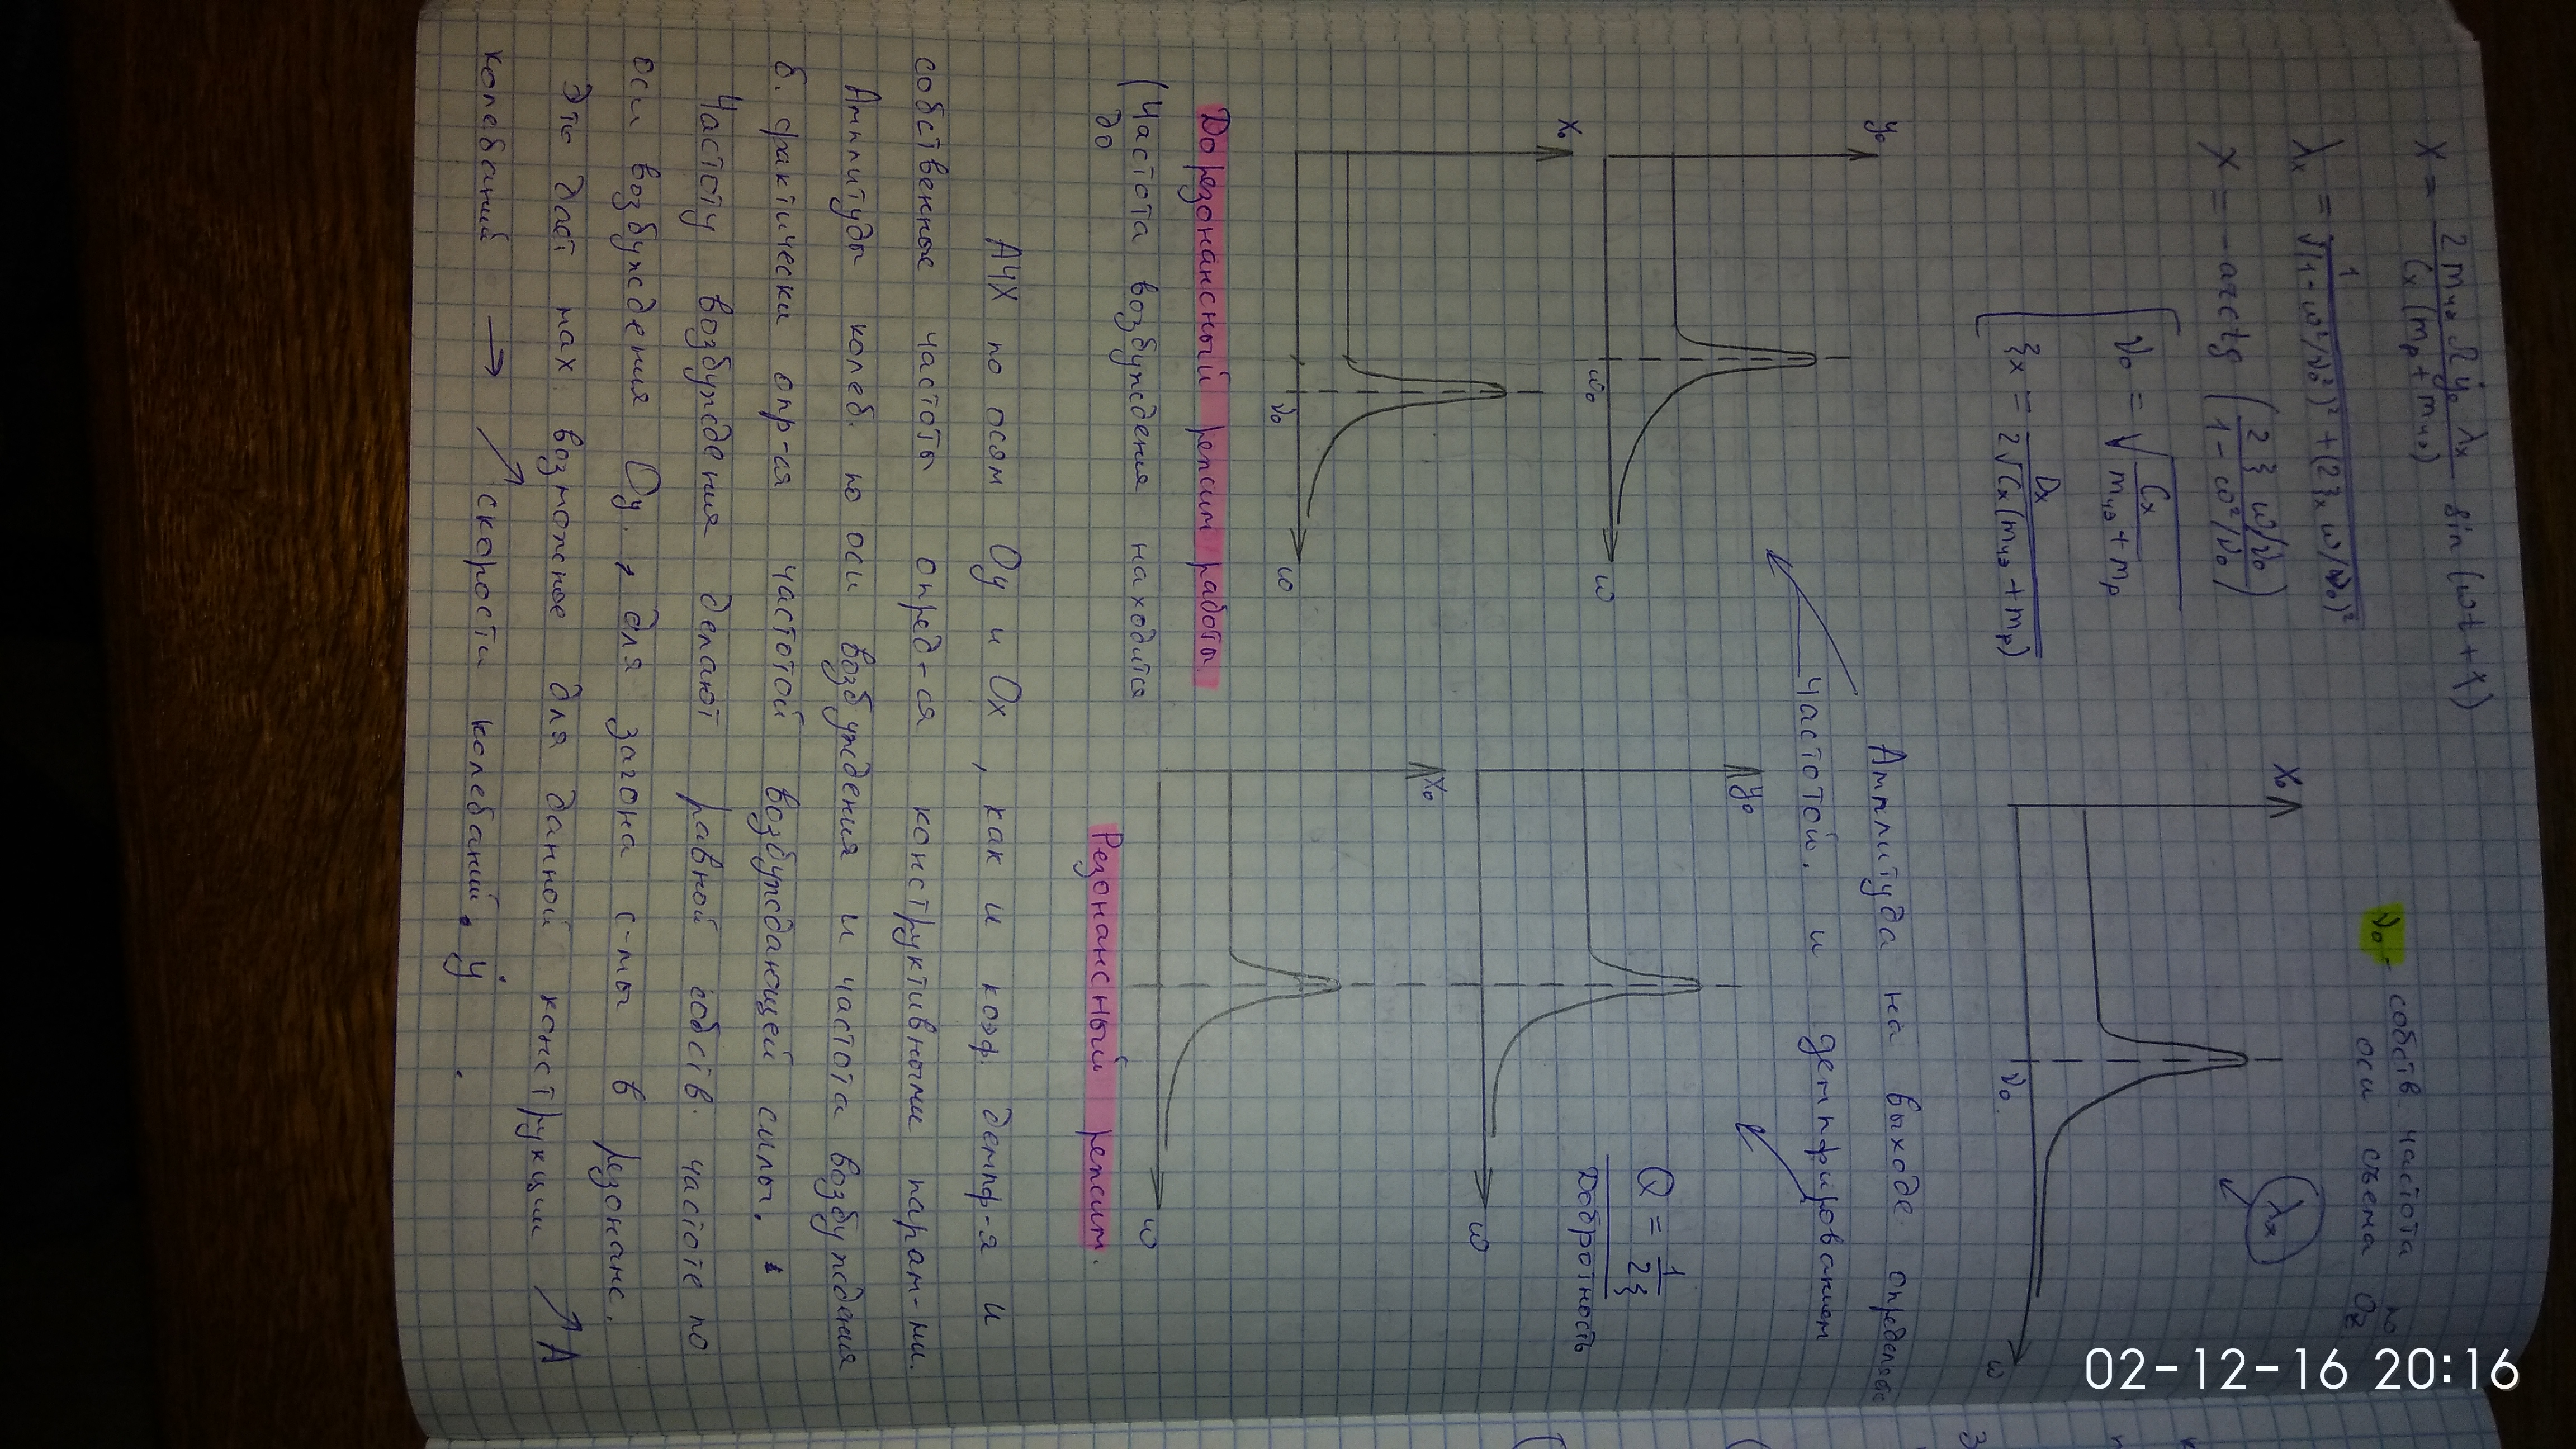 X = 2mчэ Ω ẏ₀ λx / Cx(mр + mчэ) sin(ωt + χ)
λx = 1 / √((1 - ω²/ν₀²)² + (2ξx ω/ν₀)²)
χ = -arctg (2ξ ω/ν₀ / 1 - ω²/ν₀)
ν₀ = √(Cx / mчэ + mр)
ξx = Dx / 2√(Cx(mчэ + mр))
ν₀ - собств. частота по
оси съема Oz
λx
x₀
ν₀
ω
Амплитуда на выходе определяе
частотой, и демпфированием
y₀
ω₀
ω
x₀
ν₀
ω
y₀
ω
x₀
ω
Q = 1/2ξ
Добротность
Дорезонансный режим работы.
(Частота возбуждения находится
до
Резонансный режим.
АЧХ по осям Oy и Ox, как и коэф. демпф-я и
собственные частоты опред-ся конструктивными парам-ми.
Амплитуды колеб. по оси возбуждения и частота возбуждения
б. фактически опр-ся частотой возбуждающей силы.
Частоту возбуждения делают равной собств. частоте по
оси возбуждения Oy. для загона с-мы в резонанс.
Это даст мах. возможное для данной конструкции ↗ A
колебаний → ↗ скорости колебаний. ẏ
02-12-16 20:16